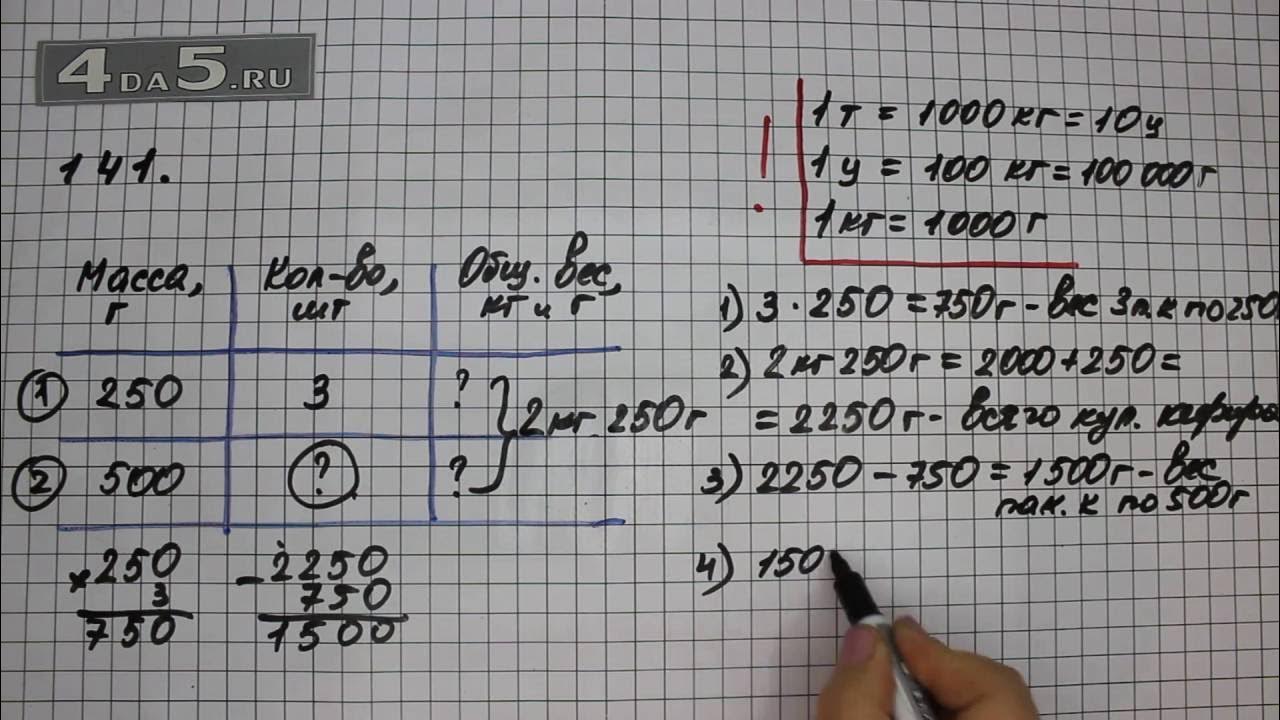 4DA5.RU
141.
1 т = 1000 кг = 10 ц
1 ц = 100 кг = 100 000 г
1 кг = 1000 г
!
Масса, г
Кол-во, шт
Общ. вес, кг и г
① 250 3 ?
2 кг 250 г
② 500 ? ?
× 250
3
750
- 2250
750
1500
1) 3 · 250 = 750 г - вес 3 п. к по 250
2) 2 кг 250 г = 2000 + 250 =
= 2250 г - всего куп.
3) 2250 - 750 = 1500 г - вес
пак. к по 500 г
4) 150